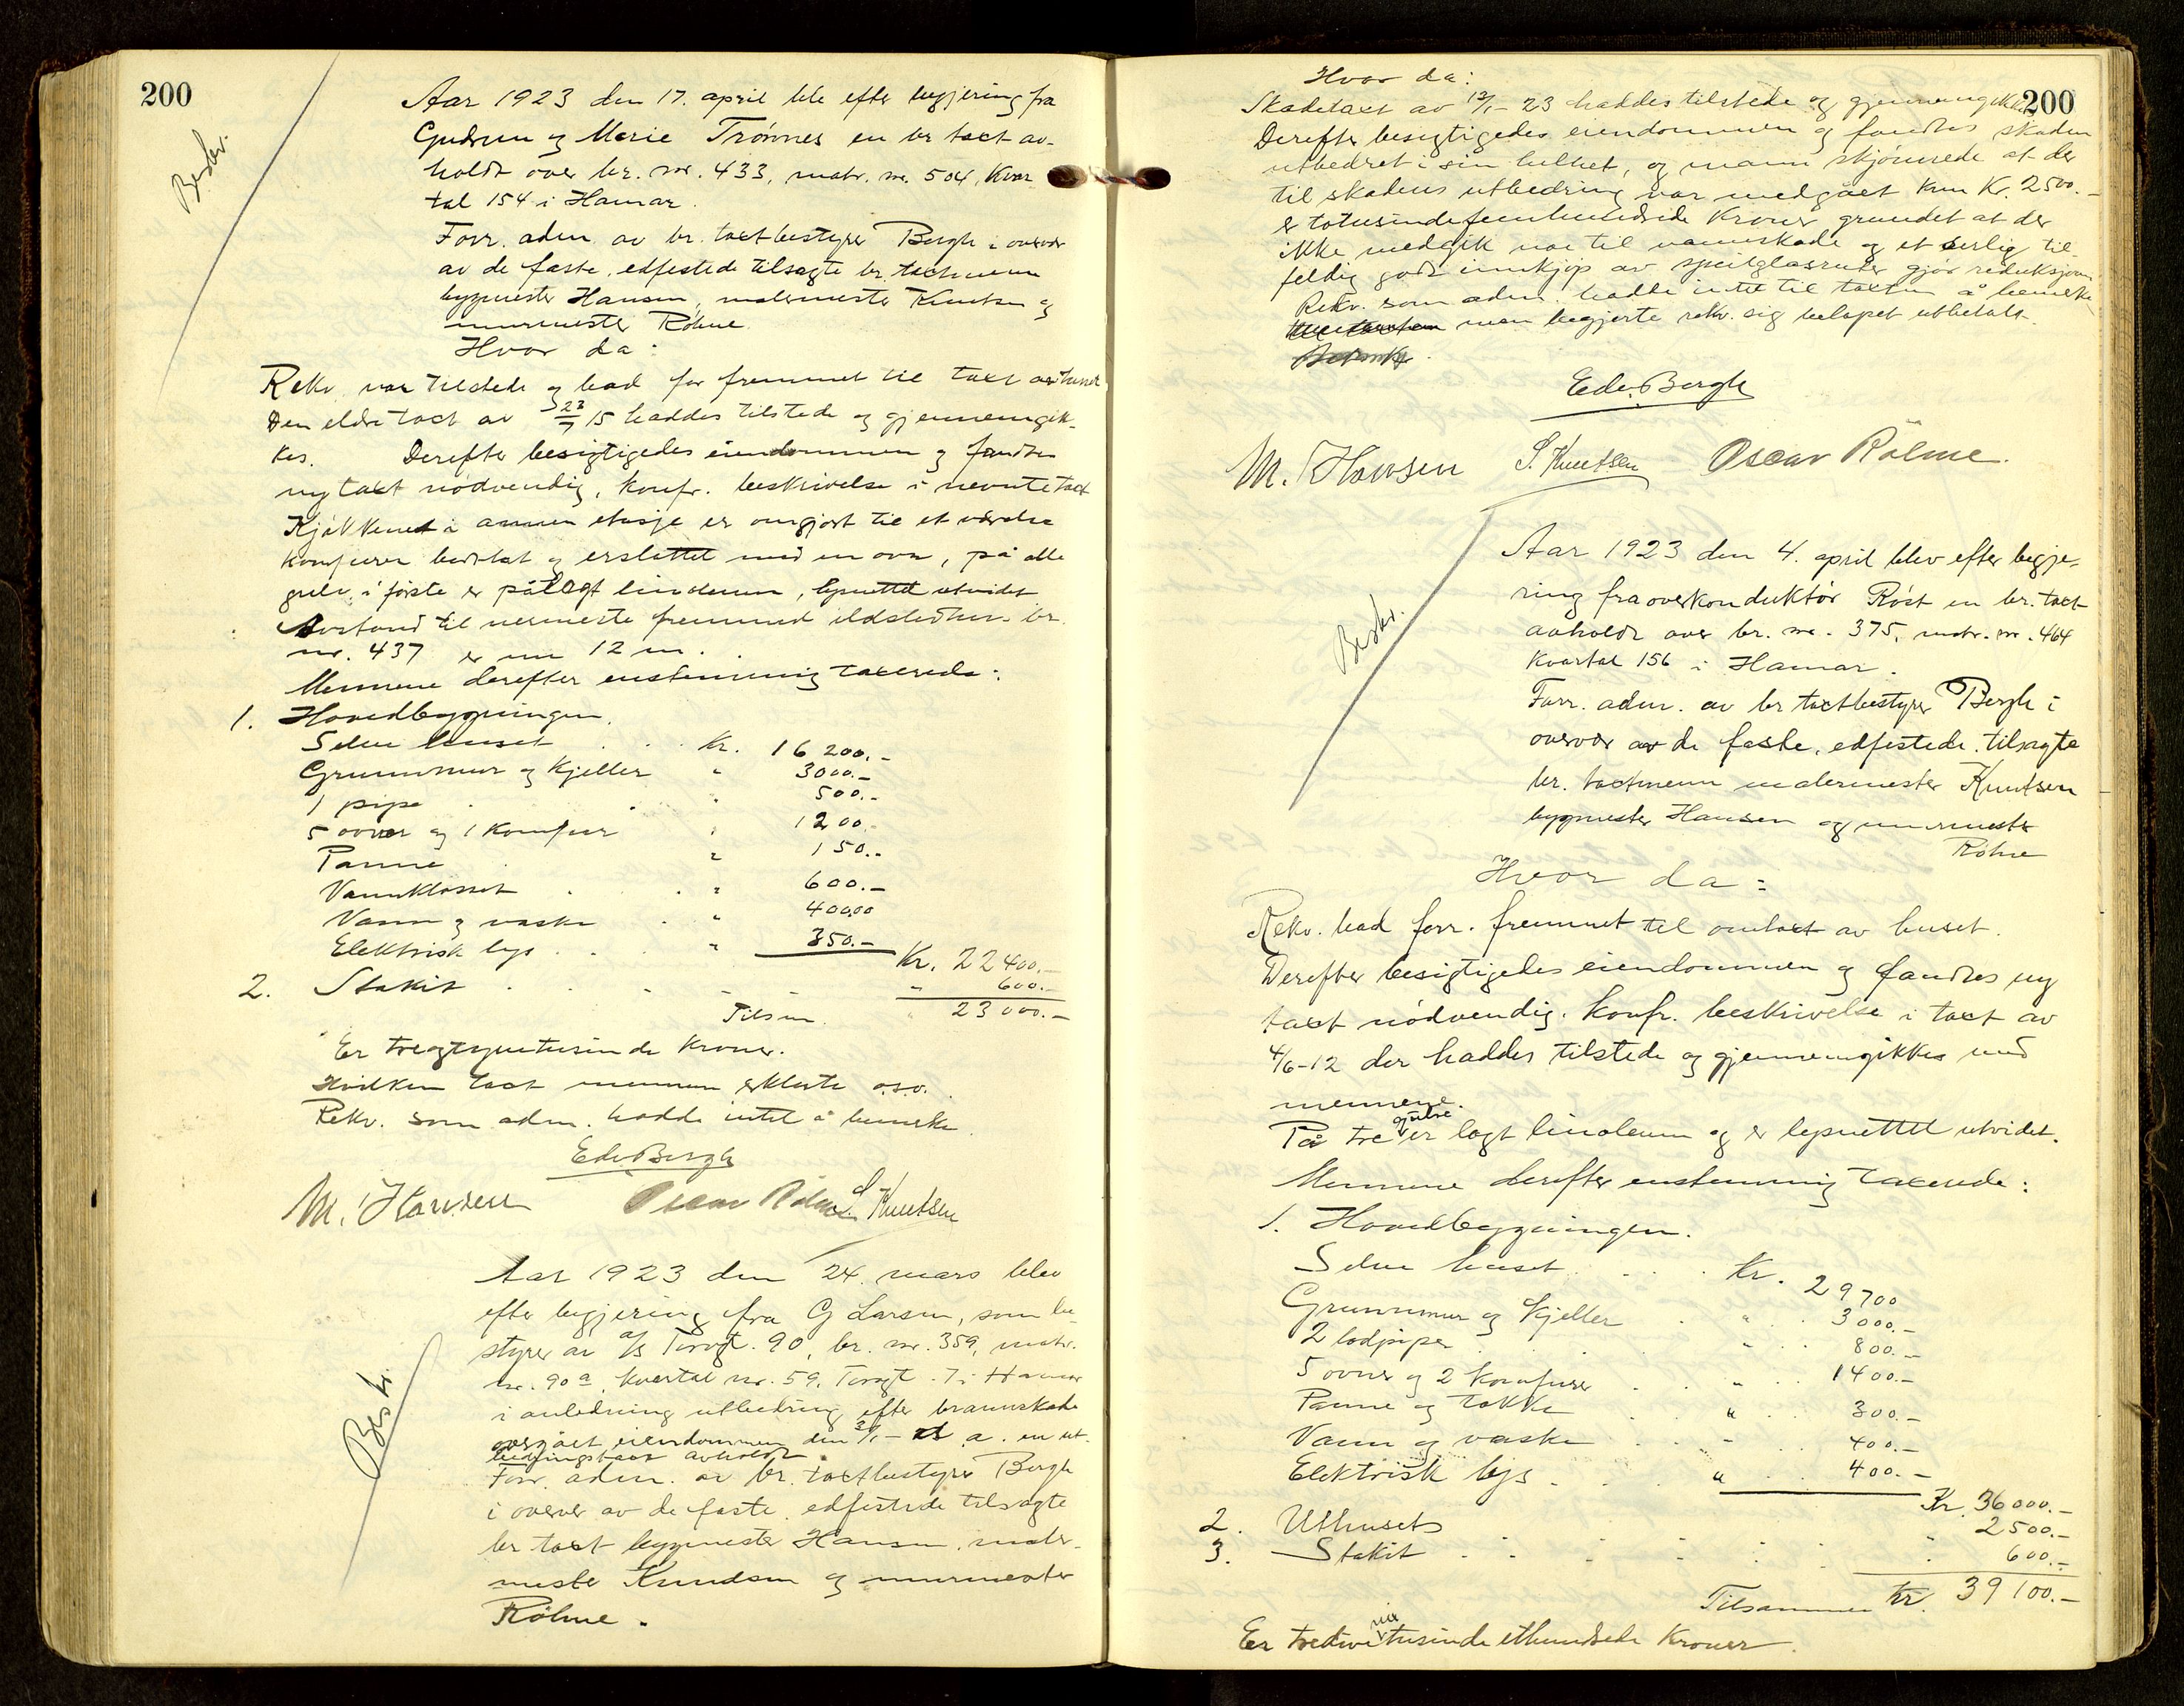 200
Beskr.
Aar 1923 den 17. april ble efter begjering fra
Gudrun og Marie Trønnes en br taxt av-
holdt over br. nr. 433, matr. nr. 504, Kvar
tal 154 i Hamar.
Forr. adm. av br. taxtbestyrer Bergh i overvær
av de faste, edfestede tilsagte br. taxtmenn
bygmester Hansen, malermester Knutsen og
murmester Røhne.
Hvor da:
Rekv. var tilstede og bad forr. fremmet til taxt av huset
Den eldre taxt av 23/7 15 haddes tilstede og gjennemgik-
kes. Derefter besigtigedes eiendommen og fandtes
ny taxt nødvendig, konfr. beskrivelse i nevnte taxt
Kjøkkenet i annen etasje er omgjort til et værelse
komfuren borttat og erstattet med en ovn, på alle
gulv i første er pålagt linoleum, lysnettet utvidet
Avstand til nermeste fremmed ildstedhus br.
nr. 437 er nu 12 m.
Mennene derefter enstemmig taxerede:
1. Hovedbygningen.
Selve huset . . . Kr. 16 200.-
Grunnmur og Kjeller " 3000.-
1 pipe . . " 500.-
5 ovner og 1 Komfur " 1200.-
Panne . " 150.-
Vannklosset . . " 600.-
Vann og vaske . " 400,00
Elektrisk lys . . " 350.-
Kr. 22 400.-
2. Stakit . . . . " 600.-
Tilsm. " 23 000.-
Er treogtyvetusinde Kroner.
Hvilken taxt mennene erklerte o.s.v.
Rekv. som adm. hadde intet å bemerke.
Edv. Bergh
M. Hansen Oscar Röhne S. Knutsen
Beskr.
Aar 1923 den 24. mars blev
efter begjering fra G Larsen, som be-
styrer av A/S Torvgt. 90, br. nr. 359, matr.
nr. 90 a, kvartal nr. 59, Torvgt. 7 i Hamar
i anledning utbedring efter brannskade
overgået eiendommen den 3/1 - d. a. en ut-
bedringstaxt avholdt.
Forr. adm. av br. taxtbestyrer Bergh
i overver av de faste, edfestede tilsagte
br taxt bygmester Hansen, maler-
mester Knudsen og murmester
Röhne.
200
Hvor da:
Skadetaxt av 12/1 - 23 haddes tilstede og gjennemgikkes
Derefter besigtigedes eiendommen og fandtes skaden
utbedret i sin helhet, og mann skjønnede at der
til skadens utbedring var medgået kun Kr. 2500.-
er totusindefemhundrede Kroner grundet at der
ikke medgik noe til vannskade og et særlig til-
feldig godt innkjøp av speilglasruter gjør reduksjonen
Rekv. som adm. hadde intet til taxten å bemerke
men begjerte rekv. sig beløpet utbetalt.
Edv. Bergh
M. Hansen S. Knutsen Oscar Röhne.
Beskr.
Aar 1923 den 4. april blev efter begje-
ring fra overkonduktør Røst en br. taxt
avholdt over br. nr. 375, matr. nr. 464
Kvartal 156 i Hamar.
Forr. adm. av br taxtbestyrer Bergh i
overvær av de faste, edfestede, tilsagte
br. taxtmenn malermester Knutsen
bygmester Hansen og murmester
Röhne
Hvor da:
Rekv. bad forr. fremmet til omtaxt av huset.
Derefter besigtigedes eiendommen og fandtes ny
taxt nødvendig. Konfr. beskrivelse i taxt av
4/6-12 der haddes tilstede og gjennemgikkes med
mennene.
På tre gulve er lagt linoleum og er lysnettet utvidet.
Mennene derefter enstemmig taxerede:
1. Hovedbygningen.
Selve huset . . . Kr. 29 700
Grunnmur og Kjeller . " . . 3000.-
2 lodpiper . . " . . 800.-
5 ovner og 2 komfurer . " . . 1400.-
Panne og takke . . " . . 300.-
Vann og vaske . . " . . 400.-
Elektrisk lys . . " . . 400.-
Kr. 36 000.-
2. Uthuset " 2500.-
3. Stakit . . . . . . 600.-
Tilsammen Kr. 39 100.-
Er tredivenitusinde ethundrede Kroner.